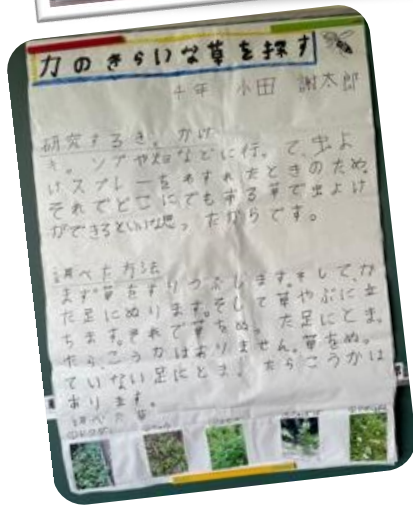 力のきらいな草を探す
四年 小田 謝太郎
研究するきっかけ
き。ソプや畑などに行って、虫よ
けスプレーをわすれたときのため。
それでどこにでもある草で虫よけ
ができるといいな思ったからです。
調べた方法
まず草をすりつぶします。そして、か
た足にぬります。そして草やぶに立
ちます。それで草をぬった足にとまっ
たら、こうかはありません。草をぬっ
ていない足にとまったらこうかは
あります。
調べた草
①ドクダミ